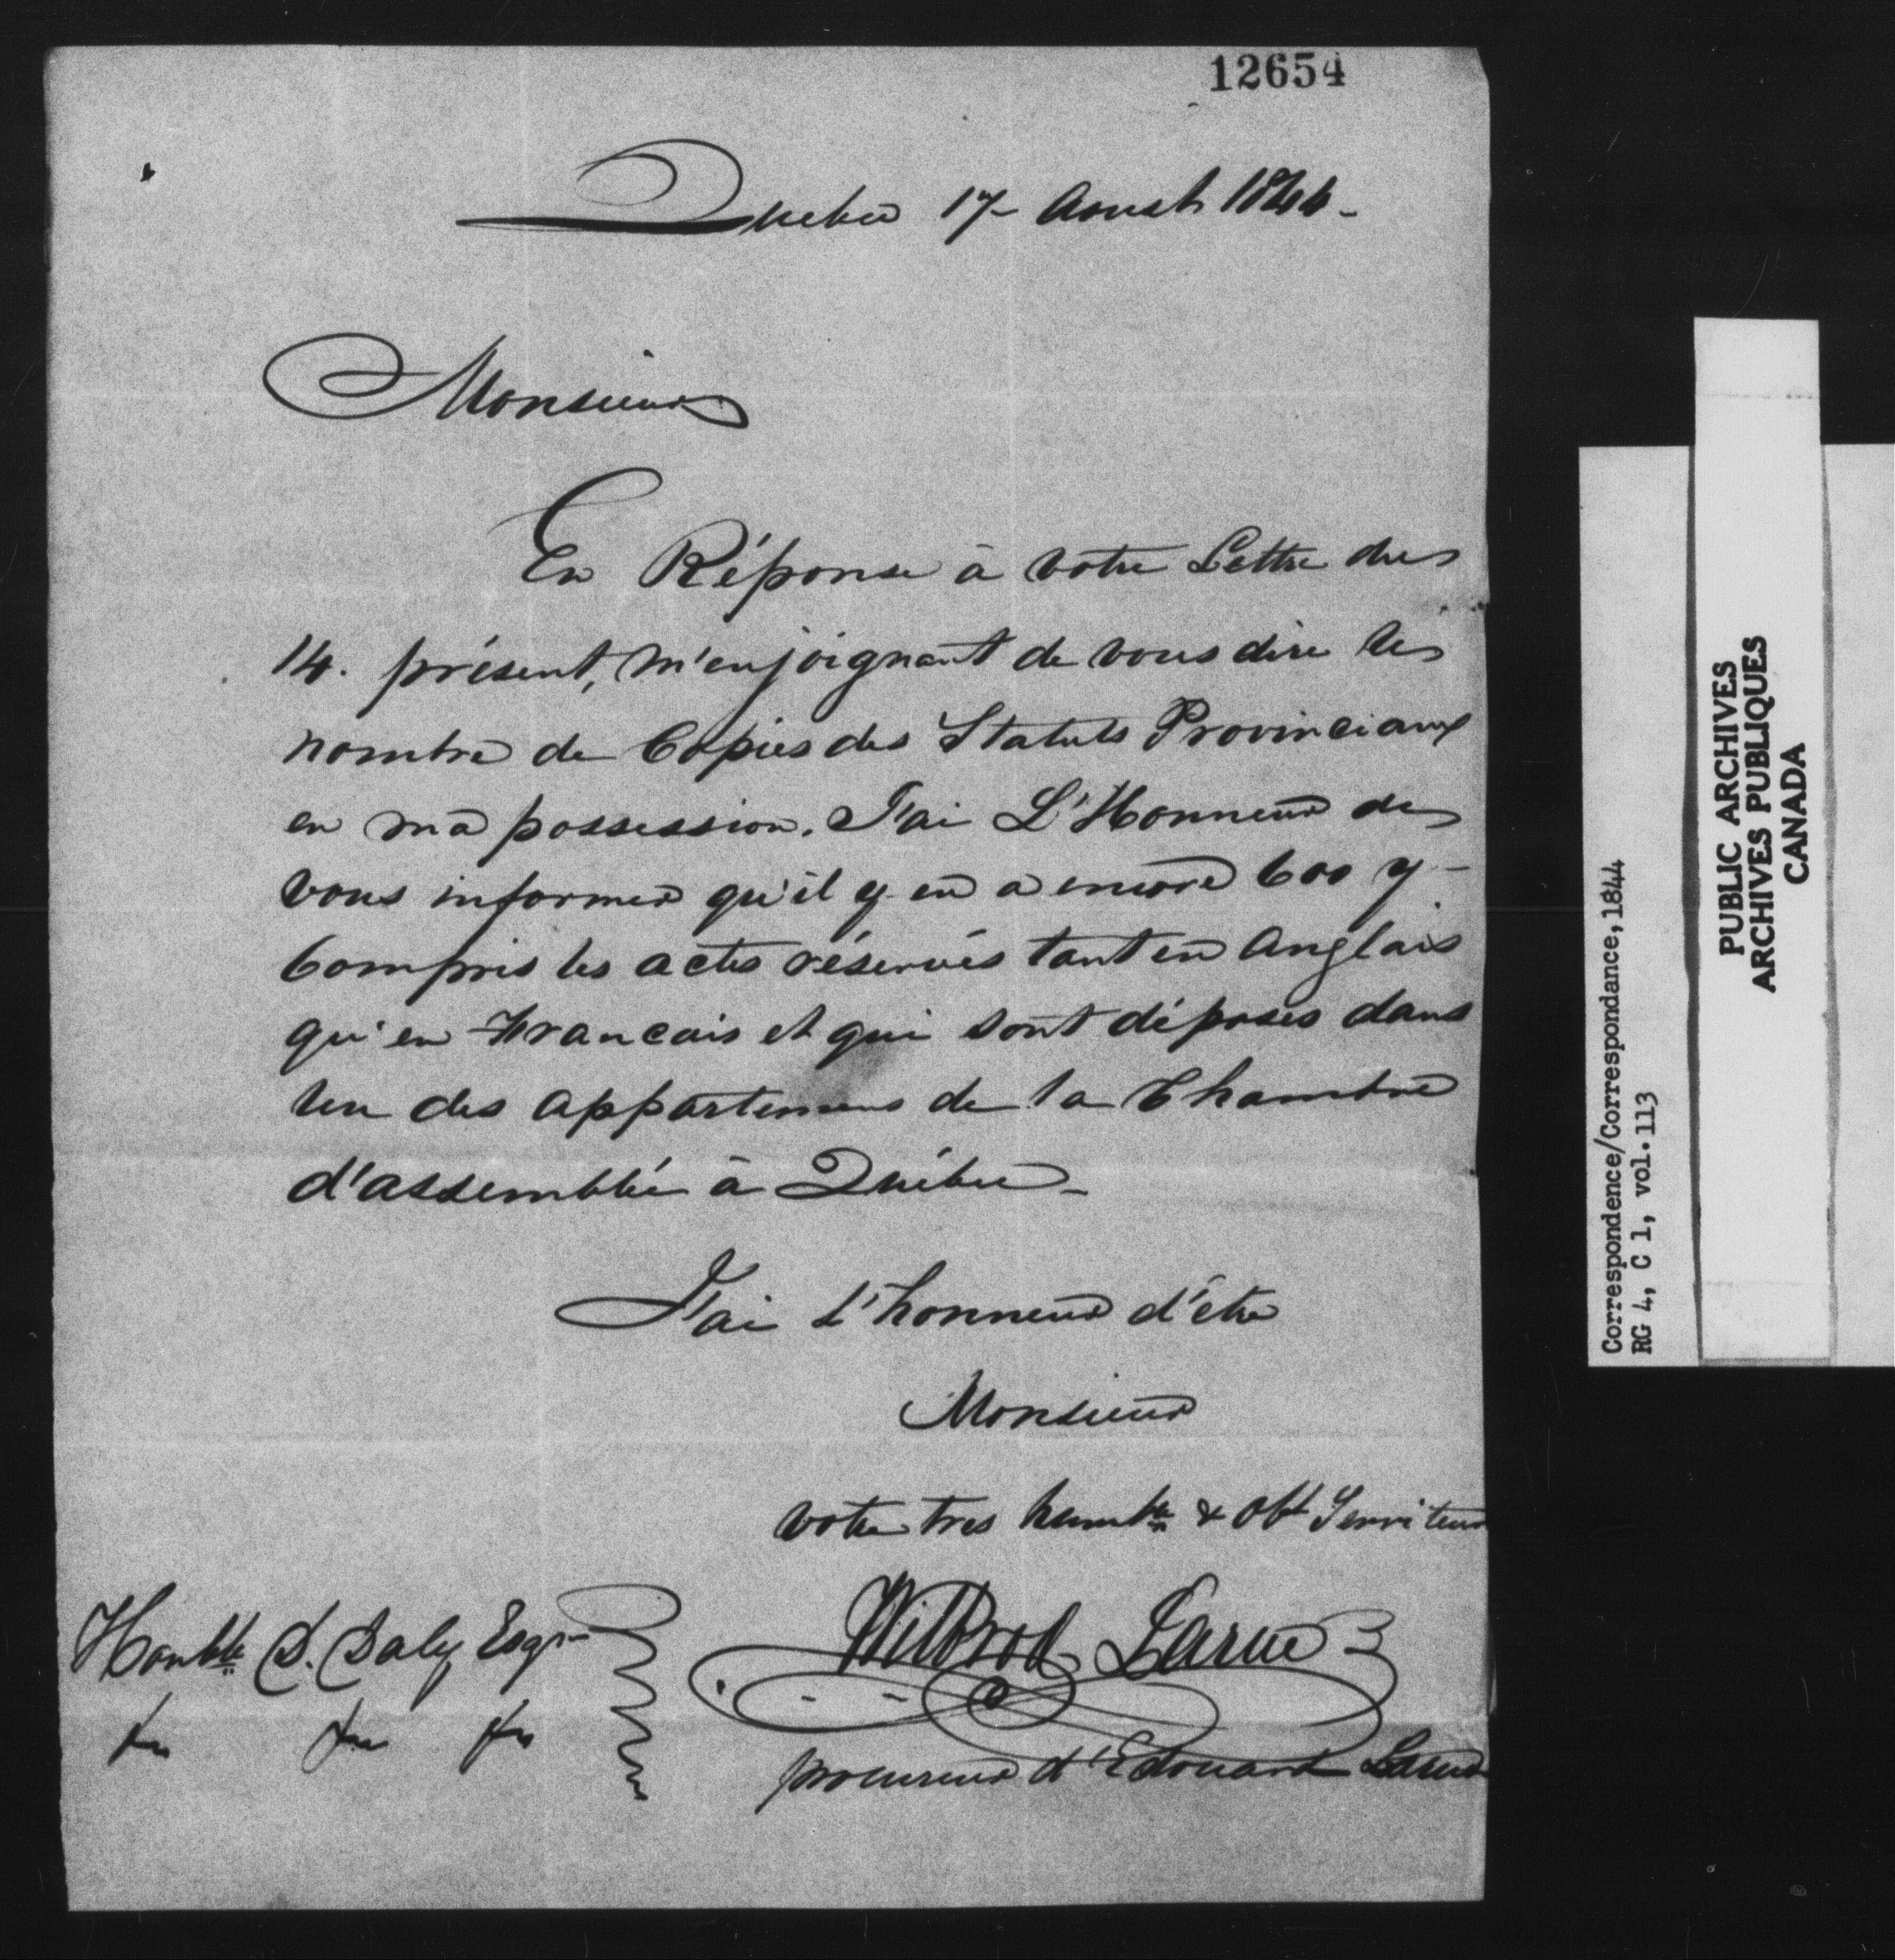 12654
Quebec 17 Aoust 1844
Monsieur
En Réponse à votre Lettre du
14. présent, m'enjoignant de vous dire le
nombre de Copies des Statuts Provinciaux
en ma possession. J'ai L'Honneur de
vous informer qu'il y en a encore 600 y
Compris les actes réservés tant en Anglais
qu'en Francais et qui sont déposés dans
un des appartemens de la Chambre
d'assemblée à Québec_
J'ai L'honneur d'être
Monsieur
votre tres humble & Obt Serviteur
Wilbrod Larue
procureur d'Edouard Larue
Honble D. Daly Esqr
Correspondence/Correspondance, 1844
RG 4, C 1, vol. 113
PUBLIC ARCHIVES
ARCHIVES PUBLIQUES
CANADA